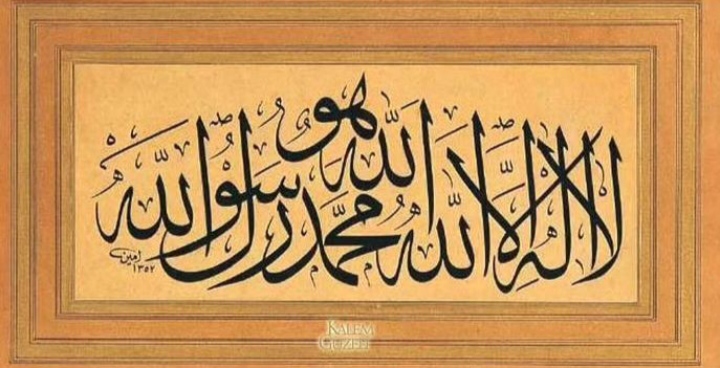 هو الله
لا اله الا الله محمد رسول الله
امين
١٣٥٢
KALEM
GÜZELİ